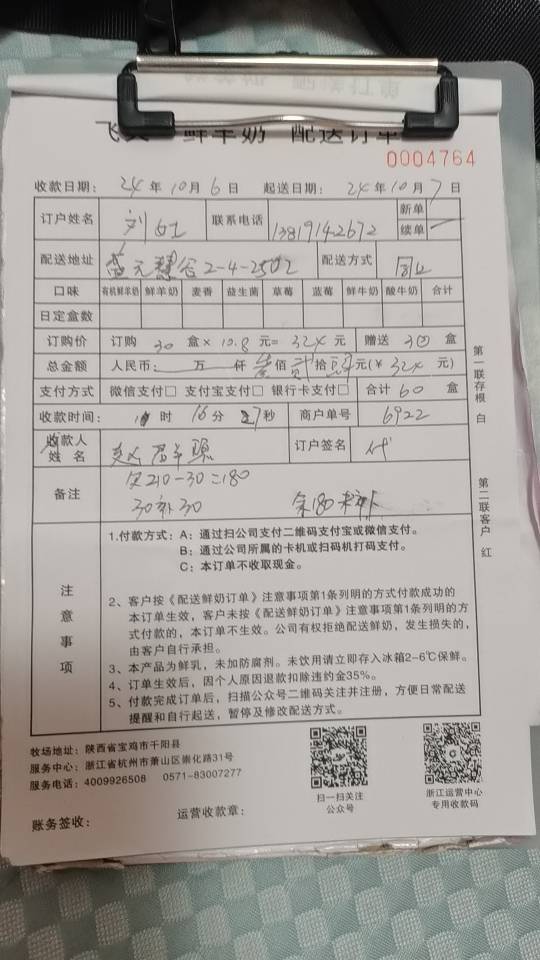 鲜羊奶 配送订单
0004764
收款日期: 24 年 10 月 6 日 起送日期: 24 年 10 月 7 日
订户姓名 刘 联系电话 13819142672 新单
续单
配送地址 元慧谷2-4-2502 配送方式
口味 有机鲜羊奶 鲜羊奶 麦香 益生菌 草莓 蓝莓 鲜牛奶 酸牛奶 合计
日定盒数
订购价 订购 30 盒 × 10.8 元= 324 元 赠送 30 盒
总金额 人民币: 万 仟 佰 贰 拾 元(¥ 324 元)
支付方式 微信支付□ 支付宝支付□ 银行卡支付□ 合计 60 盒
收款时间: 时 16 分 秒 商户单号 6922
收款人
姓 名 订户签名 代
备注 欠210-30=180
30补30 余180未补
第一联存根 白
第二联客户 红
注意事项
1.付款方式: A: 通过扫公司支付二维码支付宝或微信支付。
B: 通过公司所属的卡机或扫码机打码支付。
C: 本订单不收取现金。
2、客户按《配送鲜奶订单》注意事项第1条列明的方式付款成功的
本订单生效,客户未按《配送鲜奶订单》注意事项第1条列明的方
式付款的,本订单不生效。公司有权拒绝配送鲜奶,发生损失的,
由客户自行承担。
3、本产品为鲜乳,未加防腐剂。未饮用请立即存入冰箱2-6℃保鲜。
4、订单生效后,因个人原因退款扣除违约金35%。
5、付款完成订单后,扫描公众号二维码关注并注册,方便日常配送
提醒和自行起送,暂停及修改配送方式。
牧场地址: 陕西省宝鸡市千阳县
服务中心: 浙江省杭州市萧山区崇化路31号
服务电话: 4009926508 0571-83007277
扫一扫关注
公众号
浙江运营中心
专用收款码
账务签收: 运营收款章: